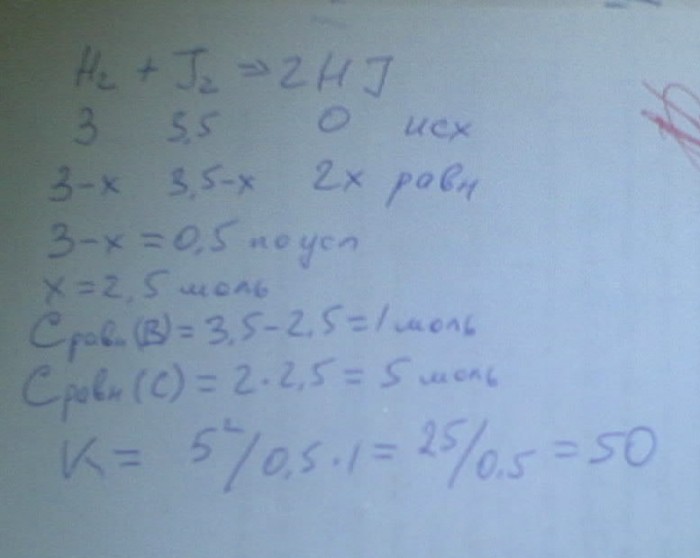 H₂ + J₂ => 2HJ
3 3,5 0 исх
3-x 3,5-x 2x равн
3-x = 0,5 по усл
x = 2,5 моль
Cравн(B) = 3,5-2,5 = 1 моль
Cравн(C) = 2·2,5 = 5 моль
K = 5²/0,5·1 = 25/0,5 = 50